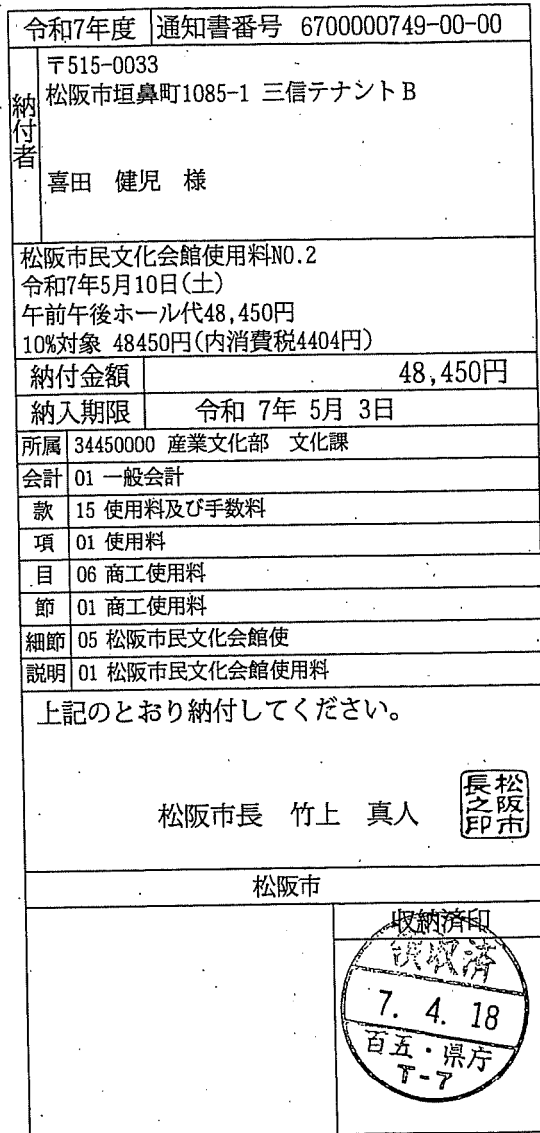 令和7年度 通知書番号 6700000749-00-00
納付者
〒515-0033
松阪市垣鼻町1085-1 三信テナントB
喜田 健児 様
松阪市民文化会館使用料NO.2
令和7年5月10日(土)
午前午後ホール代48,450円
10%対象 48450円(内消費税4404円)
納付金額 48,450円
納入期限 令和 7年 5月 3日
所属 34450000 産業文化部 文化課
会計 01 一般会計
款 15 使用料及び手数料
項 01 使用料
目 06 商工使用料
節 01 商工使用料
細節 05 松阪市民文化会館使
説明 01 松阪市民文化会館使用料
上記のとおり納付してください。
松阪市長 竹上 真人
松阪市長之印
松阪市
収納済印
領収済
7. 4. 18
百五・県庁
T-7